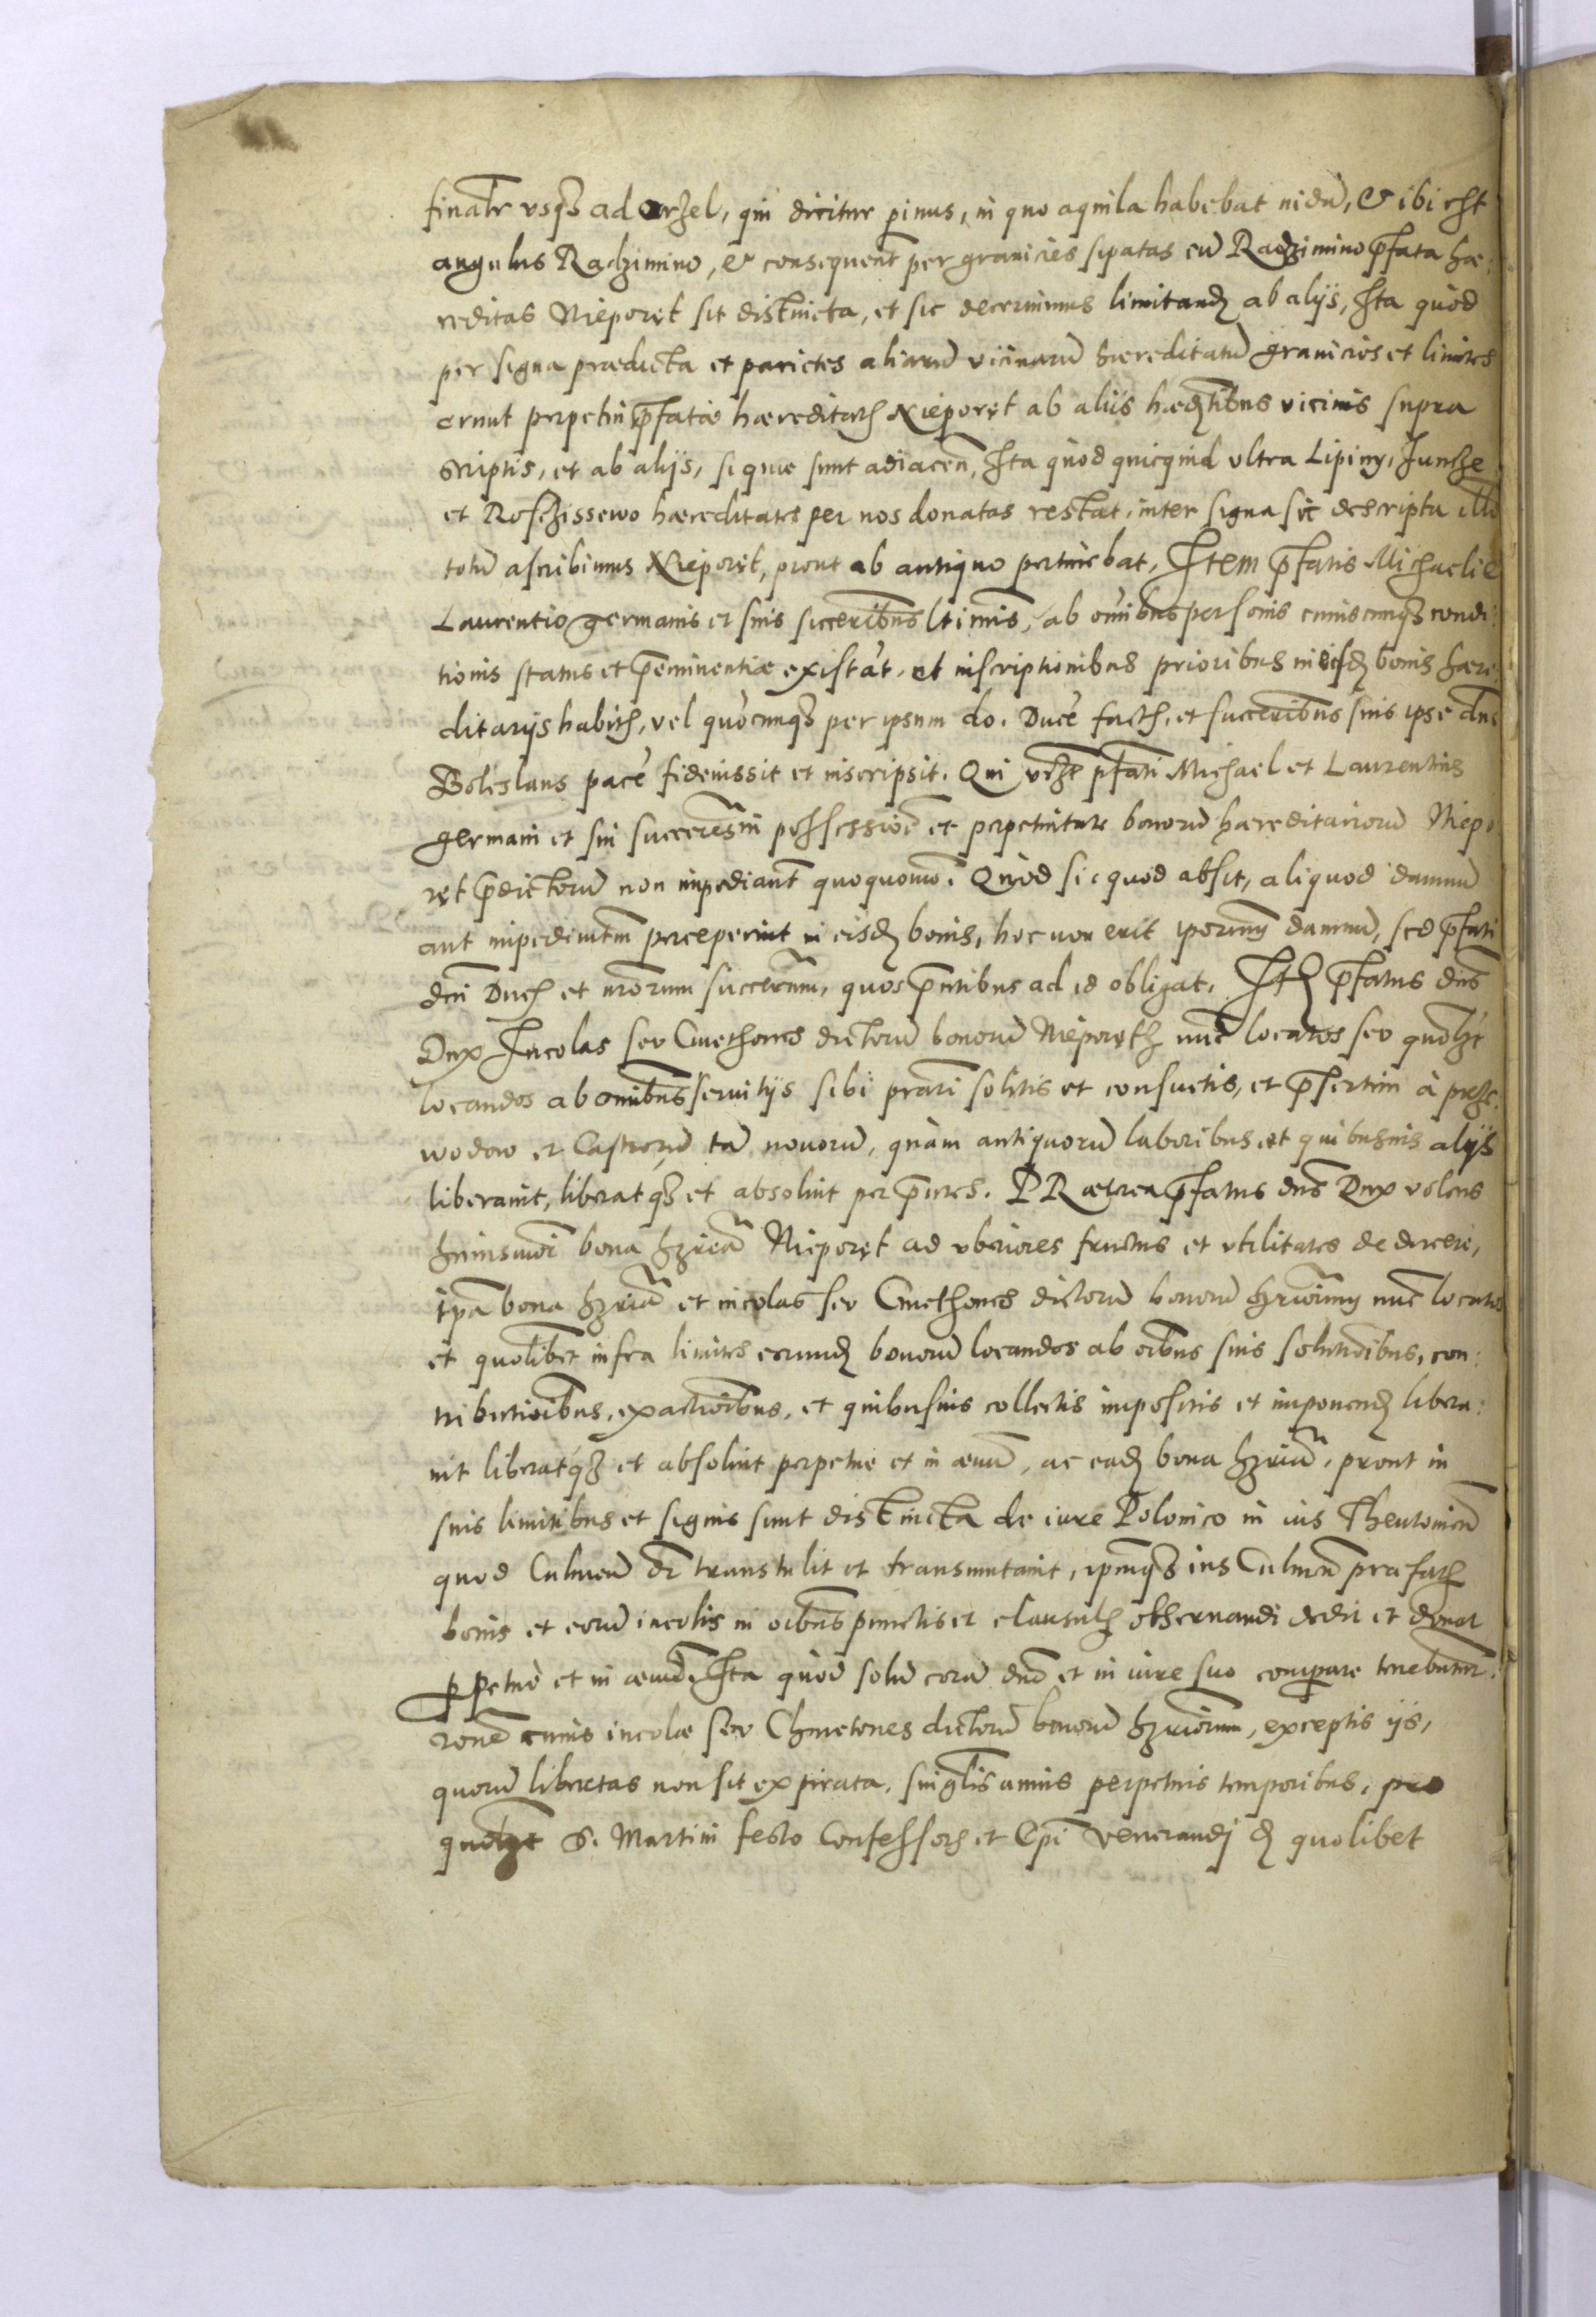 finalr usq3 ad orzel, qui dicitur pinus, in quo aquila habebat nidū, & ibi est
angulus Radzimino, & consequent̄ per granicies sipatas cū Radzimino p̄fata hæ:
reditas Nieporęt sit distincta, et sic decernimus limitand ab alijs, Ita quòd
per signa prædicta et parietes aliarū vicinarū hæreditatū granicies et limites
erunt perpetui p̄fatæ hæreditatis Nieporęt ab aliis hæreditatibus vicinis supra
scriptis, et ab alijs, si quæ sunt adiacen, Ita quòd quicquid ultra Lipiny,
et Rosczissewo hæreditates per nos donatas restat, inter signa sic descripta illud
totū ascribimus Nieporęt, prout ab antiquo pertinebat, Item p̄fatis Michaeli e
Laurentio germanis et suis succeribus ltimis, ab omibus personis cuiuscunq3 condi:
tionis status et p̄eminentiæ existāt, et inscriptionibus prioribus in eisd bonis hære:
ditarijs habitis, vel quòcunq3 per ipsum do. Ducē factis, et succeribus suis ipse dns
Boleslaus pacē fideiussit et inscripsit. Qui p̄fati Michael et Laurentius
germani et sui succeres in possessiōe et perpetuitate bonorū hæreditariorū Niepo
ręt p̄dictorū non impediant quoquomō. Quòd si quod absit, aliquod damnū
aut impedimtm perceperint in eisd bonis, hoc non erit iporum damnū, sed p̄fati
dni Ducis et succerum, quos p̄ntibus ad id obligat. Itē p̄fatus dns
Dux Incolas seu Cmethones dictorū bonorū Nieporęth nūc locatos seu quolzt
locandos ab omibus seruitijs sibi præstari solitis et consuetis, et p̄sertim à przze:
wodow et Castrorū tā nouorū, quàm antiquorū laboribus et quibusuis alijs
liberauit, liberatq3 et absoluit per p̄ntes. PRæterea p̄fatus dns Dux volens
huiusmōi bona hzria Nieporęt ad vberiores fructus et vtilitates deducere,
ipa bona hzria et incolas seu Cmethones dictorū bonorū hzriorum nūc locatos
et quolibet infra limites eorund bonorū locandos ab oibus suis solutōibus, con:
tributiōibus, exactiōibus, et quibusuis collectis impositis et imponend libera:
uit liberatq3 et absoluit perpetue et in æuū, ac ead bona hzria, prout in
suis limitibus et signis sunt distincta de iure Polonico in ius Theutonicū
quod Culmen dr transtulit et transmutauit, ipmq3 ius Culmen præfatis
bonis et eorū incolis in oibus punctis et clausulis obseruandi dedit et donat
perpetuò et in æuū. Ita quòd solū corā dno et in iure suo comparere tenebuntur.
ronē cuius incolæ seu Chmetones dictorū bonorū hzriorum, exceptis ijs,
quorū libertas non sit expirata, singulis annis perpetuis temporibus, pro
quolzt S. Martini festo Confessoris et Epi venerandj d quolibet